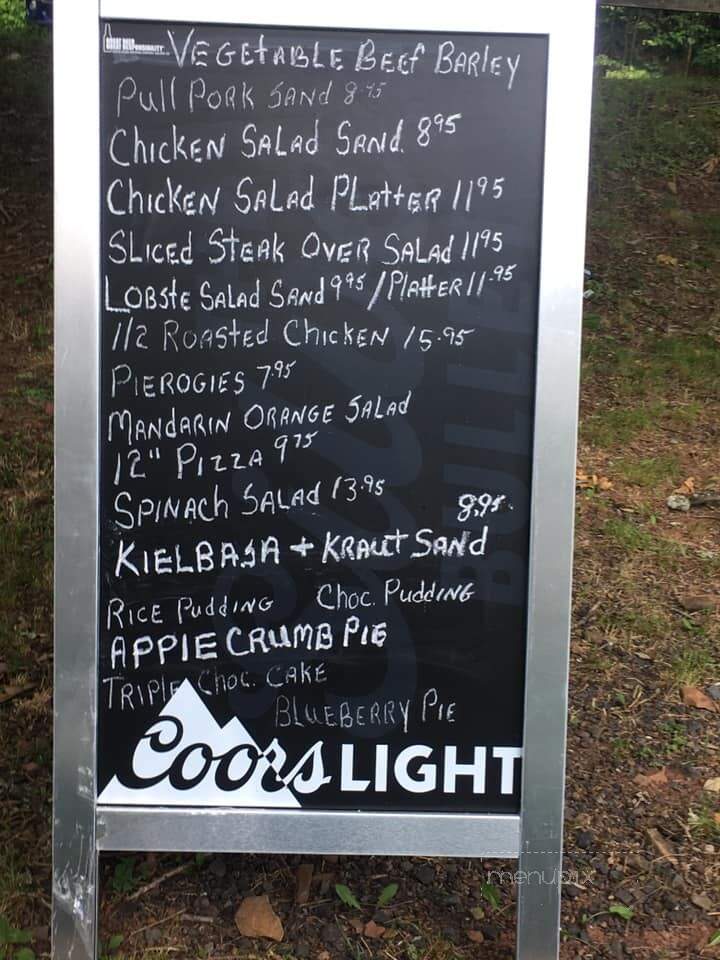 VEGETABLE BEEF BARLEY
Pull PORK SAND 8.95
CHICKEN SALAD SAND. 8 95
CHICKEN SALAD PLATTER 11 95
SLICED STEAK OVER SALAD 11 95
LOBSTE SALAD SAND 9 95 / PLATTER 11.95
1/2 ROASTED CHICKEN 15.95
PIEROGIES 7.95
MANDARIN ORANGE SALAD
12" PIZZA 9 75
SPINACH SALAD 13.95
8.95
KIELBASA + KRAUT SAND
RICE PUDDING CHOC. PUDDING
APPIE CRUMB PIE
TRIPLE CHOC. CAKE
BLUEBERRY PIE
Coors LIGHT
menupix